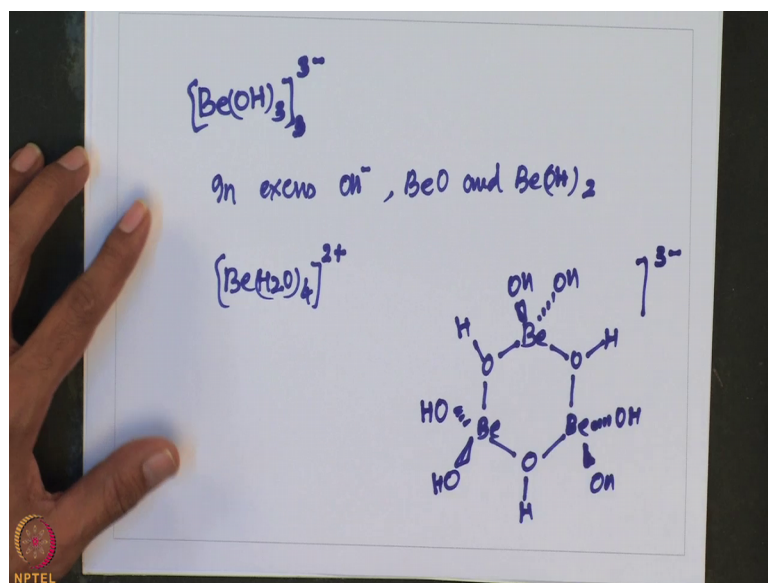 [Be(OH)3]3 3-
In excess OH-, BeO and Be(OH)2
[Be(H2O)4]2+
]3-
OH OH
Be
H O O H
HO Be Be OH
HO O OH
H
NPTEL